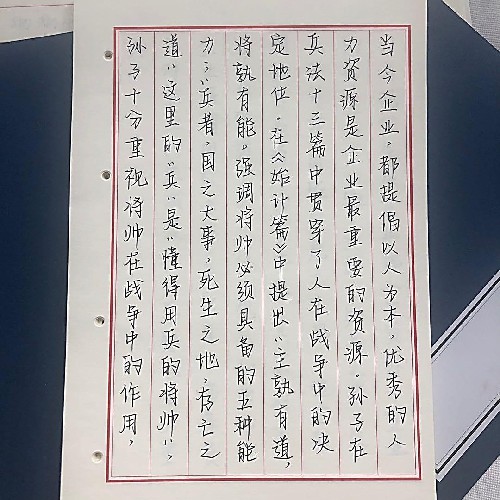 当今企业，都提倡以人为本，优秀的人
力资源是企业最重要的资源。孙子在
兵法十三篇中贯穿了人在战争中的决
定地位。在《始计篇》中提出“主孰有道，
将孰有能。强调将帅必须具备的五种能
力，“兵者，国之大事，死生之地，存亡之
道”这里的“兵”是“懂得用兵的将帅”，
孙子十分重视将帅在战争中的作用，